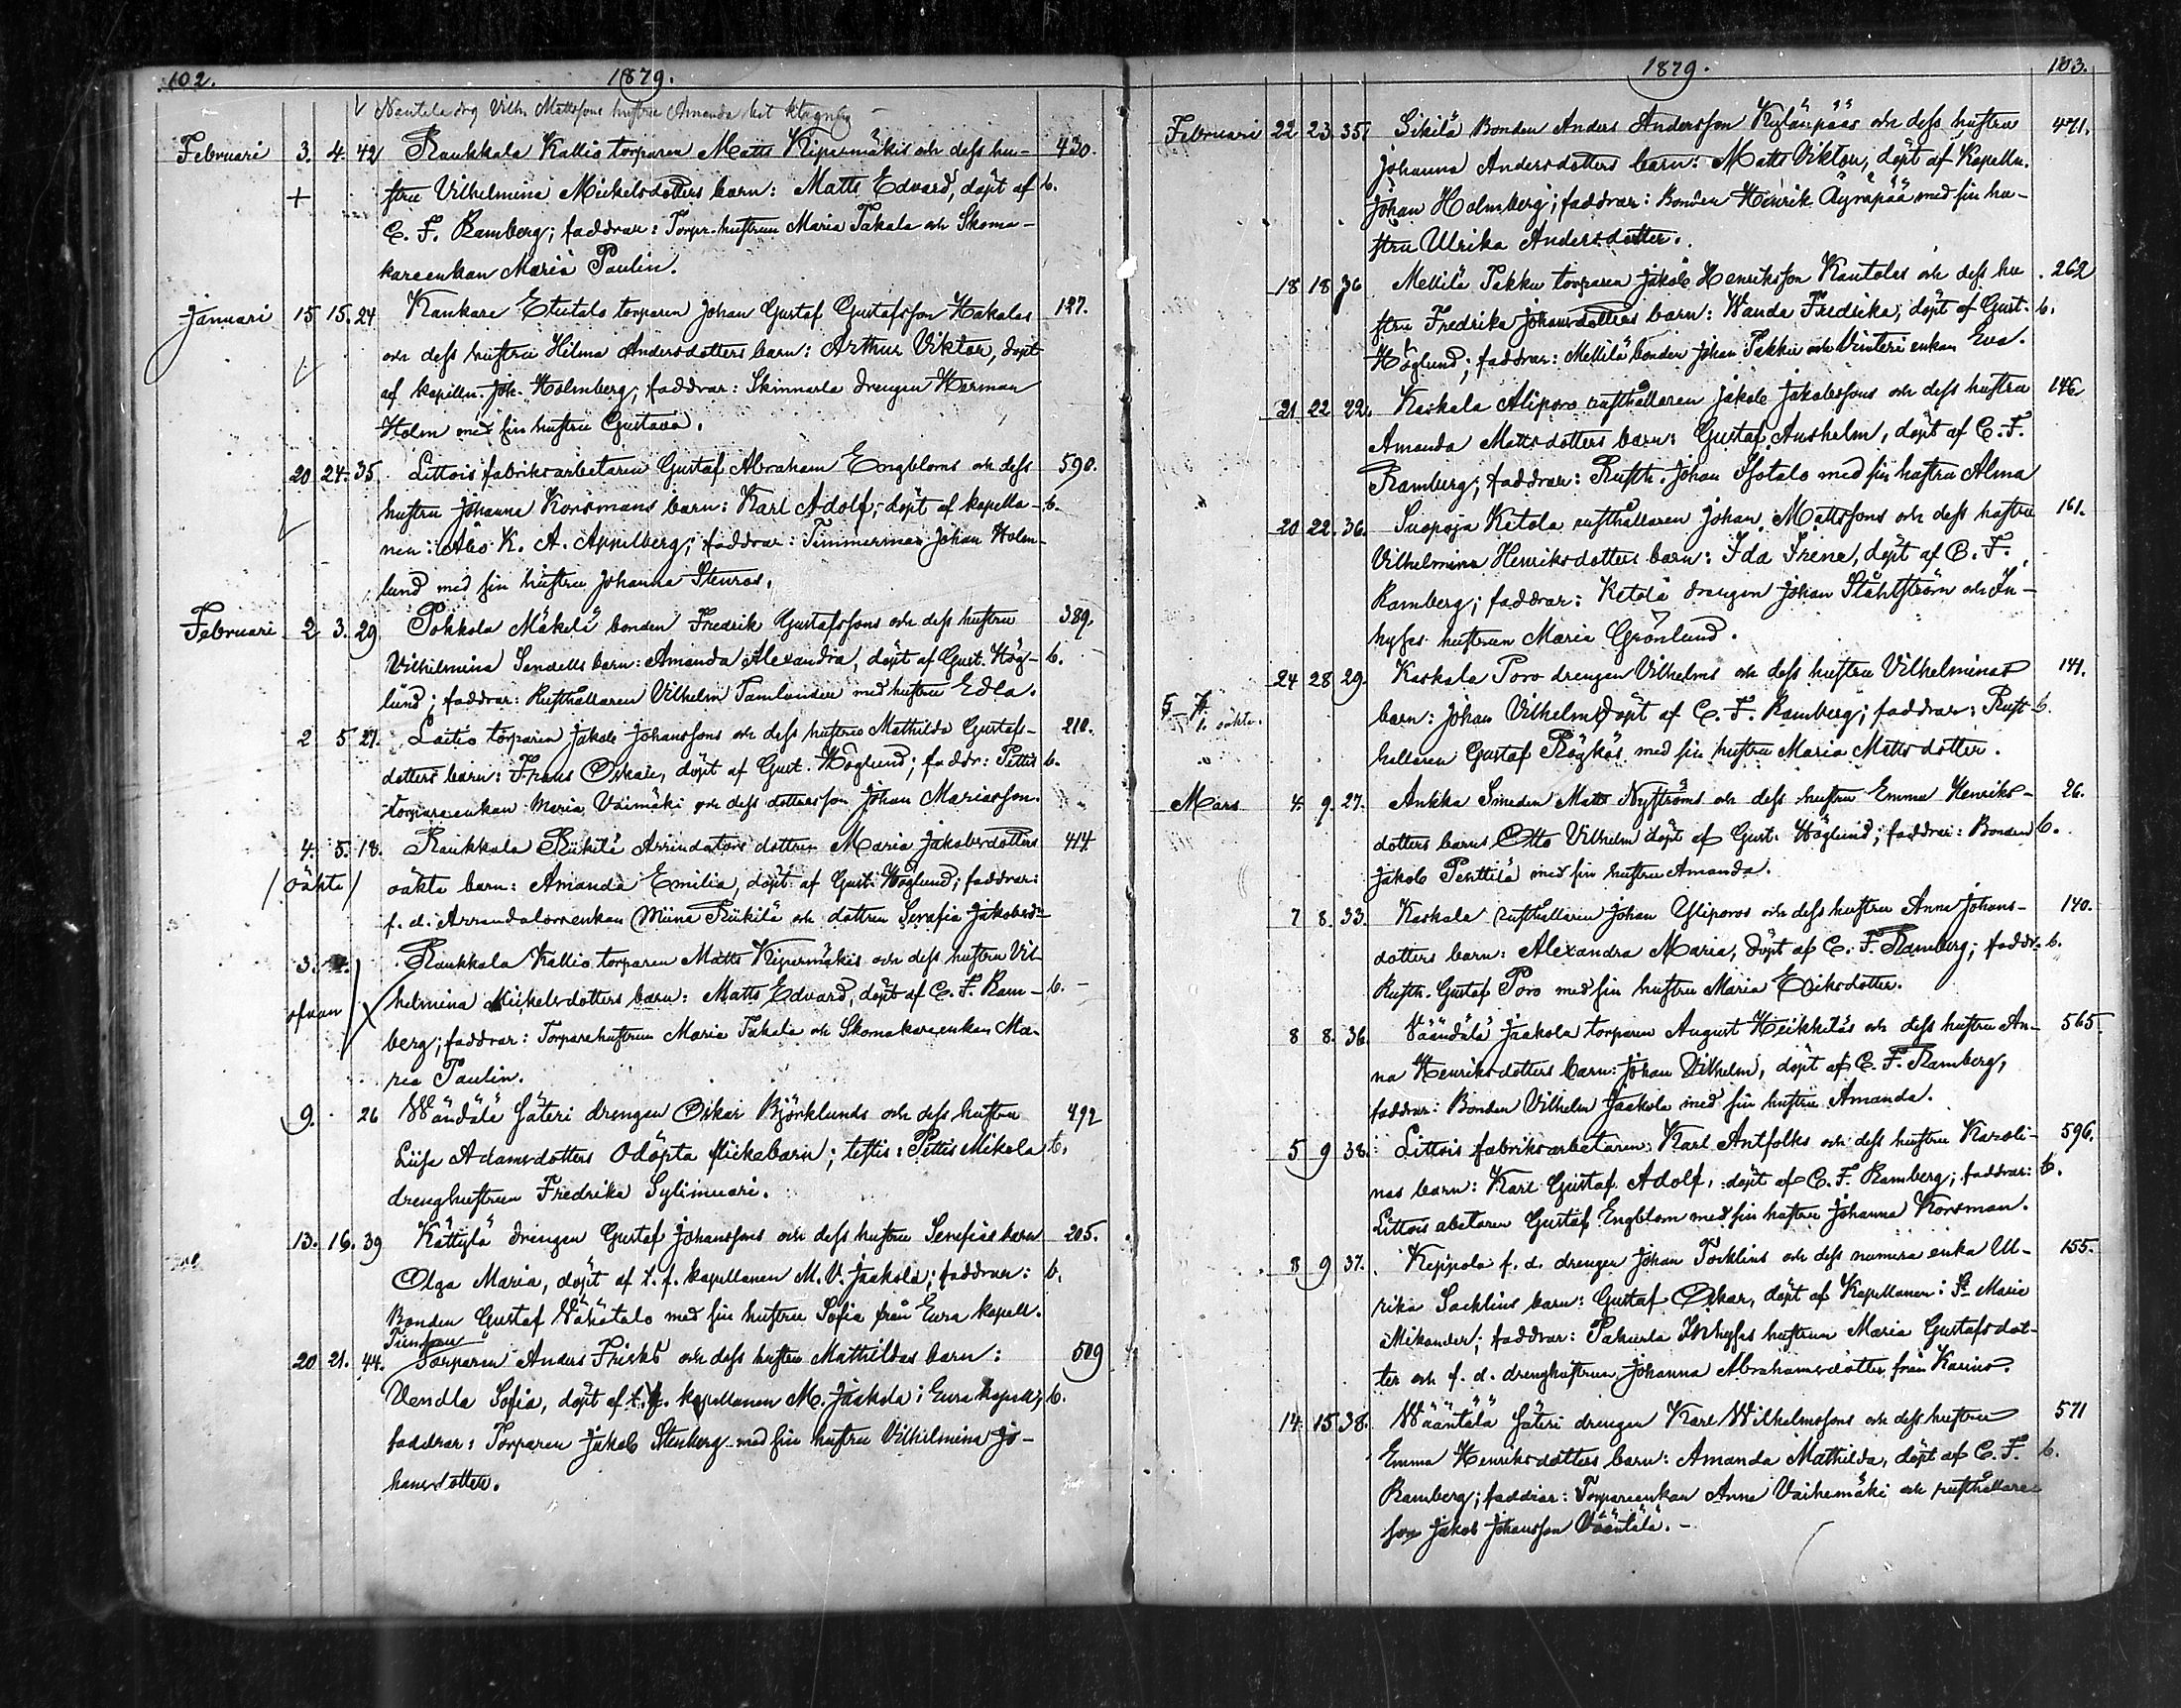 102. 1879.
Nautela drg Vilh. Mattssons hustru Amanda
Februari 3. 4. 42 Raukkala Kallio torparen Matts Kipinmäkis och dess hu- 430.
+ stru Vilhelmina Mickelsdotters barn: Matts Edvard, döpt af b.
C. F. Ramberg; faddrar: Torpr. hustrun Maria Takala och Skoma-
kareenkan Maria Paulin.
Januari 15 15. 24 Kankare Etutalo torparen Johan Gustaf Gustafsson Hakalas 127.
och dess hustru Hilma Andersdotters barn: Arthur Viktor, döpt
af kapelln. Joh. Holmberg; faddrar: Skinnarla drengen Herman
Holm med sin hustru Gustava.
20 24. 35 Littois fabriksarbetaren Gustaf Abraham Engbloms och dess 590.
hustru Johanna Korsmans barn: Karl Adolf, döpt af kapella- b.
nen i Åbo K. A. Appelberg; faddrar: Timmerman Johan Holm-
lund med sin hustru Johanna Stenros.
Februari 2 3. 29 Pohkola Mäkilä bonden Fredrik Gustafssons och dess hustru 389.
Vilhelmina Sandells barn: Amanda Alexandra, döpt af Gust. Hög- b.
lund; faddrar: Rusthållaren Vilhelm Tamlander med hustru Edla.
2 5 27. Laitio torparen Jakob Johanssons och dess hustru Mathilda Gustafs- 210.
dotters barn: Frans Oskar, döpt af Gust. Höglund; faddr: Pettis b.
torpareenkan Maria Vaimäki och dess dotterson Johan Mariasson.
4. 5. 18. Raukkala Rükilä Arrendators dottren Maria Jakobsdotters 414
/oäkta/ oäkta barn: Amanda Emilia, döpt af Gust. Höglund; faddrar:
f. d. Arrendatorenkan Miina Rükilä och dottren Serafia Jakobsdr
3. 4. Raukkala Kallio torparen Matts Kipinmäkis och dess hustru Vil-
ofvan helmina Mickelsdotters barn: Matts Edvard, döpt af C. F. Ram- b. -
berg; faddrar: Torparehustrun Maria Takala och Skomakareenkan Ma-
ria Paulin.
9. 26 Wändälä Säteri drengen Oskar Björklunds och dess hustru 492
Liisa Adamsdotters Odöpta flickebarn; testis: Pettis Mikola b.
drenghustrun Fredrika Sylimuari.
13. 16. 39 Kättylä drengen Gustaf Johanssons och dess hustru Serafias barn 205.
Olga Maria, döpt af t. f. kapellanen M. V. Jaakola; faddrar: b.
Bonden Gustaf Vähätalo med sin hustru Sofia från Eura kapell.
20 21. 44. Torparen Anders Frisks och dess hustru Mathildas barn: 509
Vendla Sofia, döpt af t. f. kapellanen M. Jaakola i Eura kapell; b.
faddrar: Torparen Jakob Stenberg med sin hustru Vilhelmina Jo-
hansdotter.
1879. 103.
Februari 22 23. 35. Sikilä Bonden Anders Andersson Kyläinpääs och dess hustru 471.
Johanna Andersdotters barn: Matts Viktor, döpt af Kapelln.
Johan Holmberg; faddrar: Bonden Henrik Äyräpää med sin hu-
stru Ulrika Andersdotter.
18 18 36 Mellilä Pakku torparen Jakob Henriksson Kantolas och dess hu 262
stru Fredrika Johansdotters barn: Wanda Fredrika, döpt af Gust. b.
Höglund; faddrar: Mellilä bonden Johan Pakku och Vinteri enkan Eva.
21 22 22. Kaskala Aliporo rusthållaren Jakob Jakobssons och dess hustru 146
Amanda Mattsdotters barn: Gustaf Anshelm, döpt af C. F.
Ramberg; faddrar: Rusth. Johan Isotalo med sin hustru Alma
20 22. 36. Suopoja Ketola rusthållaren Johan Mattssons och dess hustru 161.
Vilhelmina Henriksdotters barn: Ida Irene, döpt af C. F.
Ramberg; faddrar: Ketola drengen Johan Ståhlström och In-
hyses hustrun Maria Grönlund.
24 28 29. Kaskala Poro drengen Vilhelms och dess hustru Vilhelminas 141.
barn: Johan Vilhelm, döpt af C. F. Ramberg; faddrar: Rust- b.
hållaren Gustaf Röykäs med sin hustru Maria Mattsdotter.
Mars 4. 9. 27. Ankka Smeden Matts Nyströms och dess hustru Emma Henriks- 26.
dotters barn: Otto Vilhelm döpt af Gust. Höglund; faddrar: Bonden b.
Jakob Penttilä med sin hustru Amanda.
7 8. 33. Kaskala rusthållaren Johan Yliporos och dess hustru Anna Johans- 140.
dotters barn: Alexandra Maria, döpt af C. F. Ramberg; faddr. b.
Rusth. Gustaf Poro med sin hustru Maria Eriksdotter.
8 8. 36. Väändälä Jaakola torparen August Heikkiläs och dess hustru An- 565.
na Henriksdotters barn: Johan Vilhelm, döpt af C. F. Ramberg,
faddrar: Bonden Vilhelm Jaakola med sin hustru Amanda.
5 9 38. Littois fabriksarbetaren Karl Antfolks och dess hustru Karoli- 596.
nas barn: Karl Gustaf Adolf, döpt af C. F. Ramberg; faddrar: b.
Littois abetaren Gustaf Engblom med sin hustru Johanna Korsman.
8 9 37. Keppola f. d. drengen Johan Tocklins och dess numera enka Ul- 155.
rika Sacklins barn: Gustaf Oskar, döpt af Kapellanen i St Marie
Mikander; faddrar: Pakurla Inhyses hustrun Maria Gustafsdot-
ter och f. d. drenghustrun Johanna Abrahamsdotter från Karino.
14. 15. 38. Wääntälä Säteri drengen Karl Wilhelmssons och dess hustru 571
Emma Henriksdotters barn: Amanda Mathilda, döpt af C. F. b.
Ramberg; faddrar: Torpareenkan Anna Vaihemäki och rusthållare
son Jakob Johansson Wääntälä. -